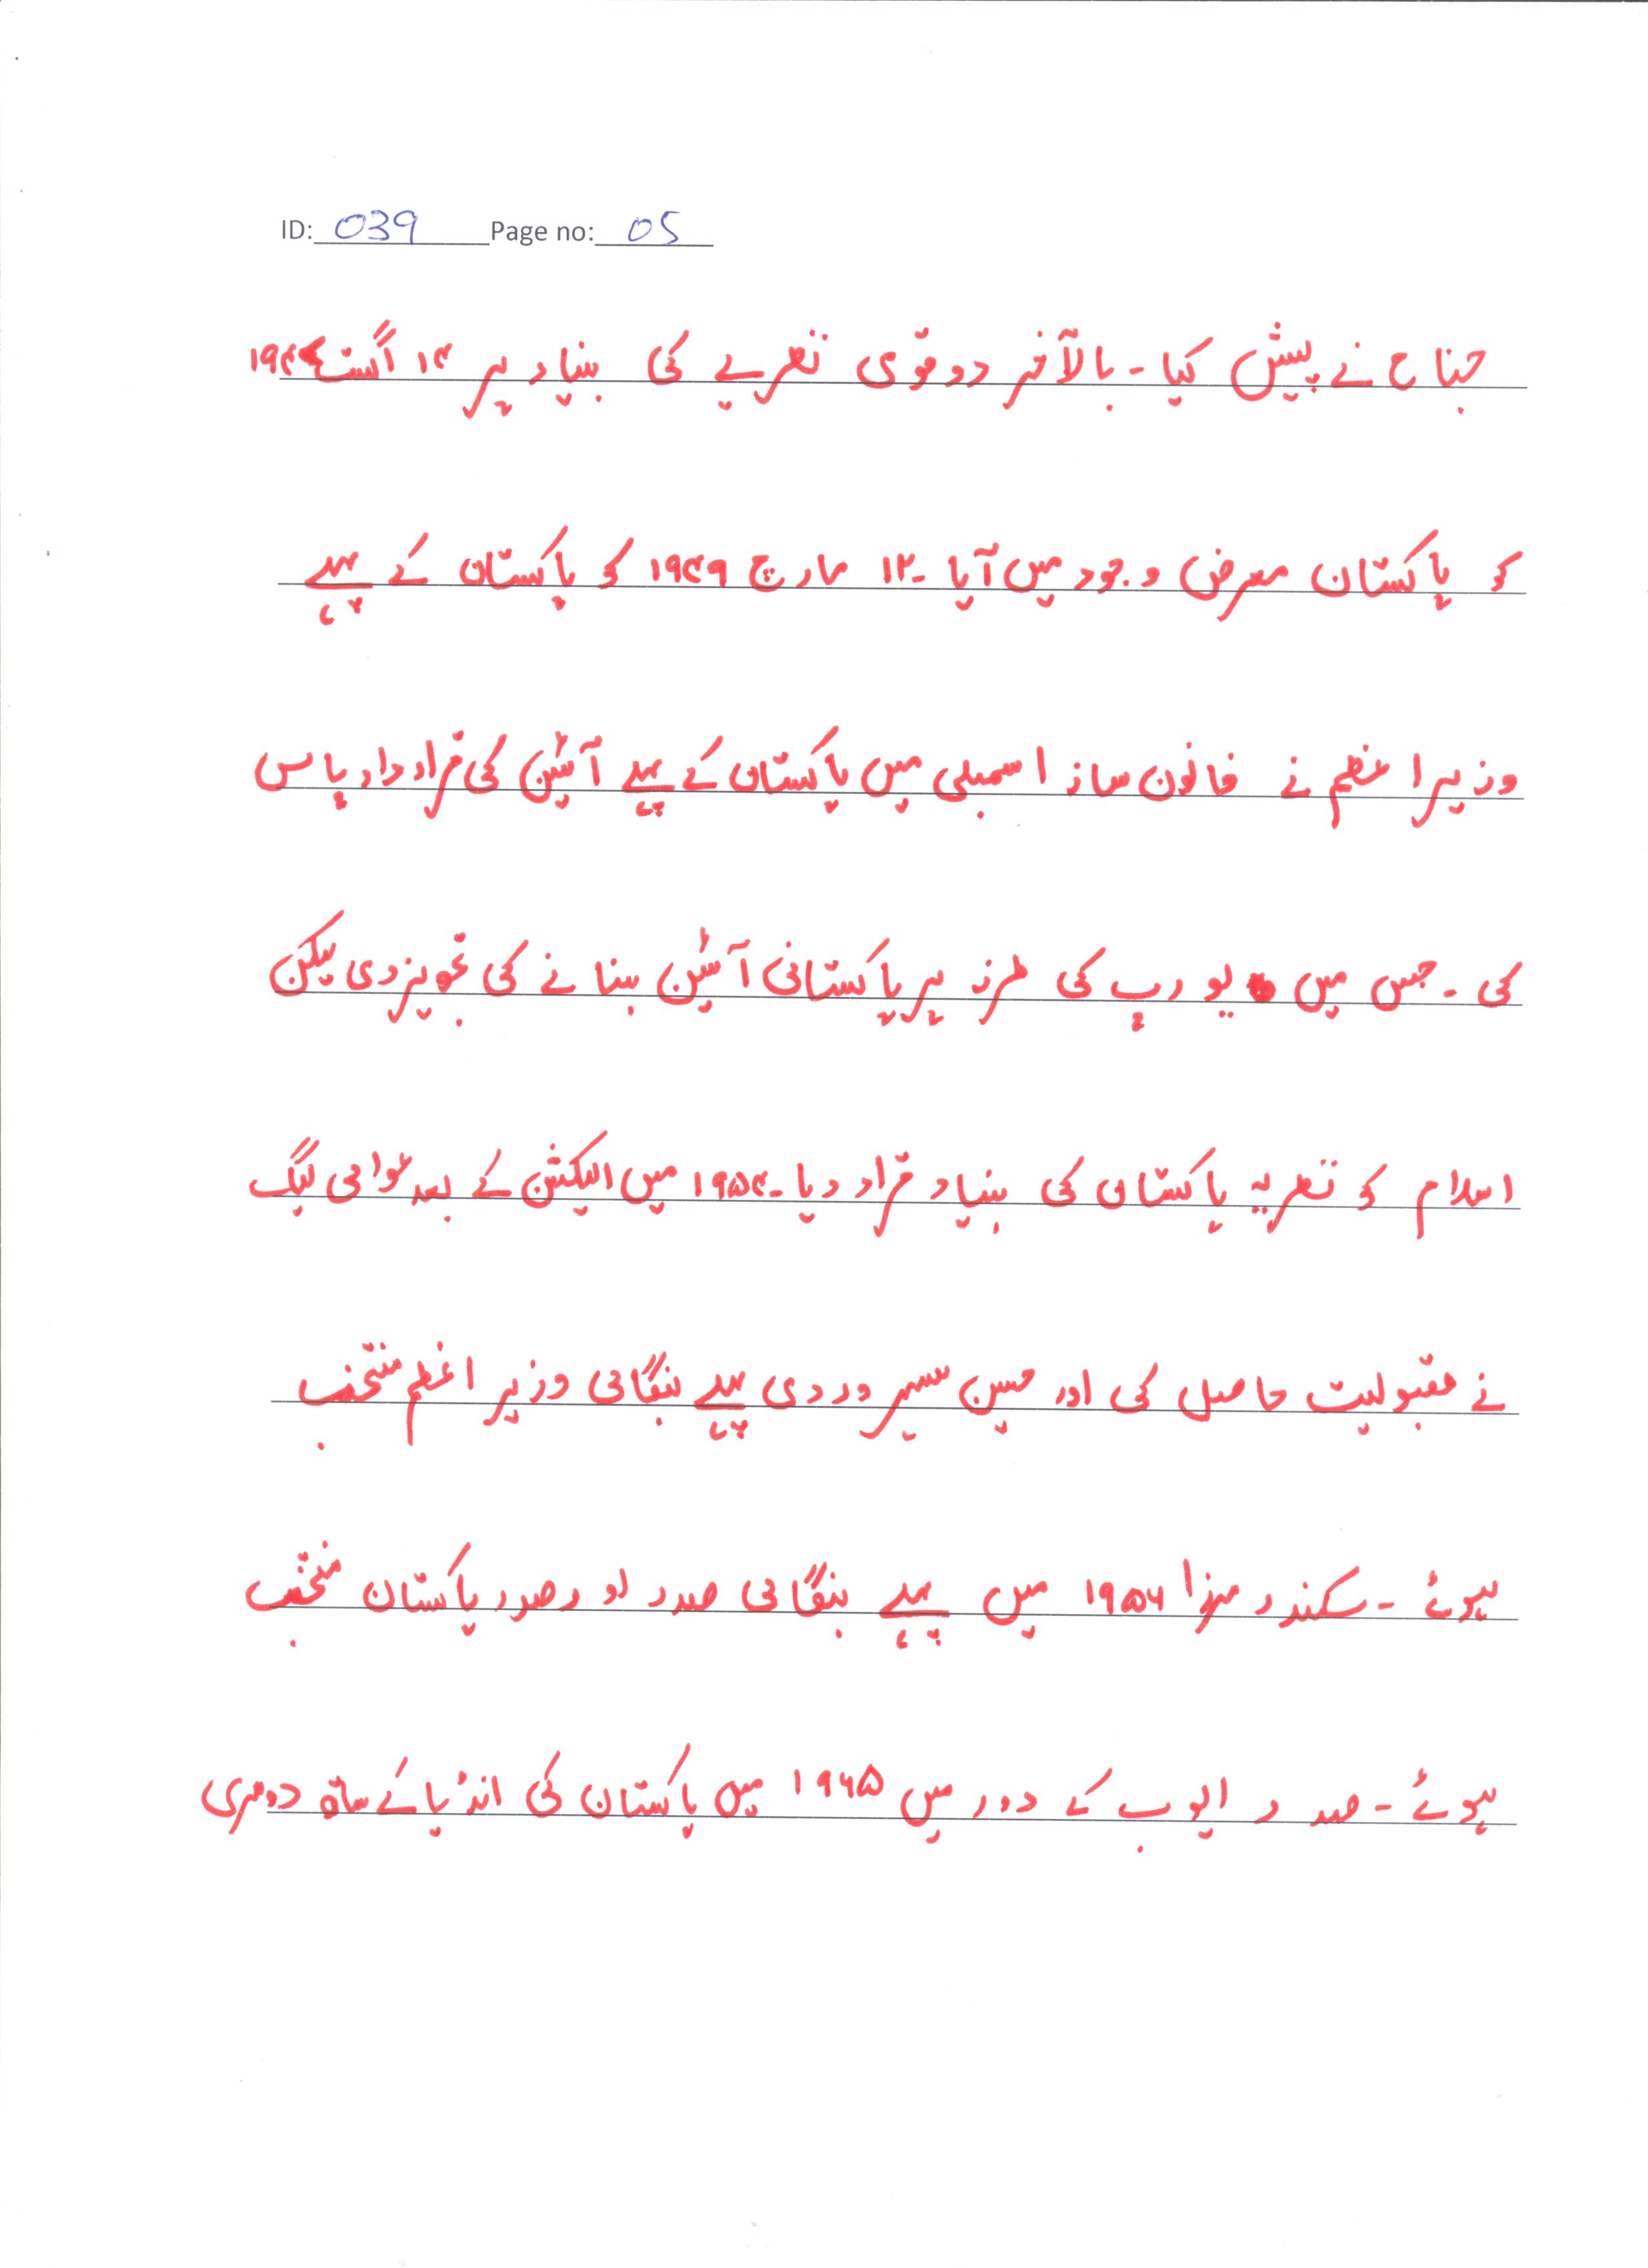 ID: 039 Page no: 05
جناح نے پیش کیا۔ بالآخر دو قومی نظریے کی بنیاد پر ۱۴ اگست ۱۹۴۷
کو پاکستان معرض وجود میں آیا ۔ ۱۲ مارچ ۱۹۴۹ کو پاکستان کے پہلے
وزیراعظم نے قانون ساز اسمبلی میں پاکستان کے پہلے آئین کی قراد داد پاس
کی ۔ جس میں یورپ کی طرز پر پاکستانی آئین بنانے کی تجویز دی لیکن
اسلام کو نظریہ پاکستان کی بنیاد قراد دیا ۔ ۱۹۵۴ میں الیکشن کے بعد عوامی لیگ
نے مقبولیت حاصل کی اور حسین سہروردی پہلے بنگالی وزیر اعظم منتخب
ہوئے ۔ سکندر مرزا ۱۹۵۶ میں پہلے بنگالی صدر اور صدر پاکستان منتخب
ہوئے ۔ صدر ایوب کے دور میں ۱۹۶۵ میں پاکستان کی انڈیا کے ساتھ دوسری